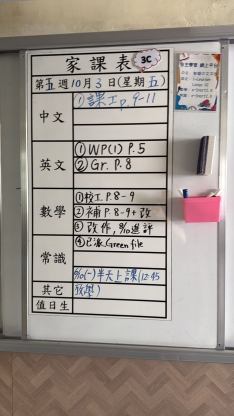 家課表 3C
第五週10月3日(星期五)
中文
①課工p.9-11
英文
①WP(1) P.5
②Gr. P.8
數學
①校工P.8-9
②補P.8-9+改
③改作,
④已派Green file
常識
(一)半天上課(12:45
放學)
其它
值日生